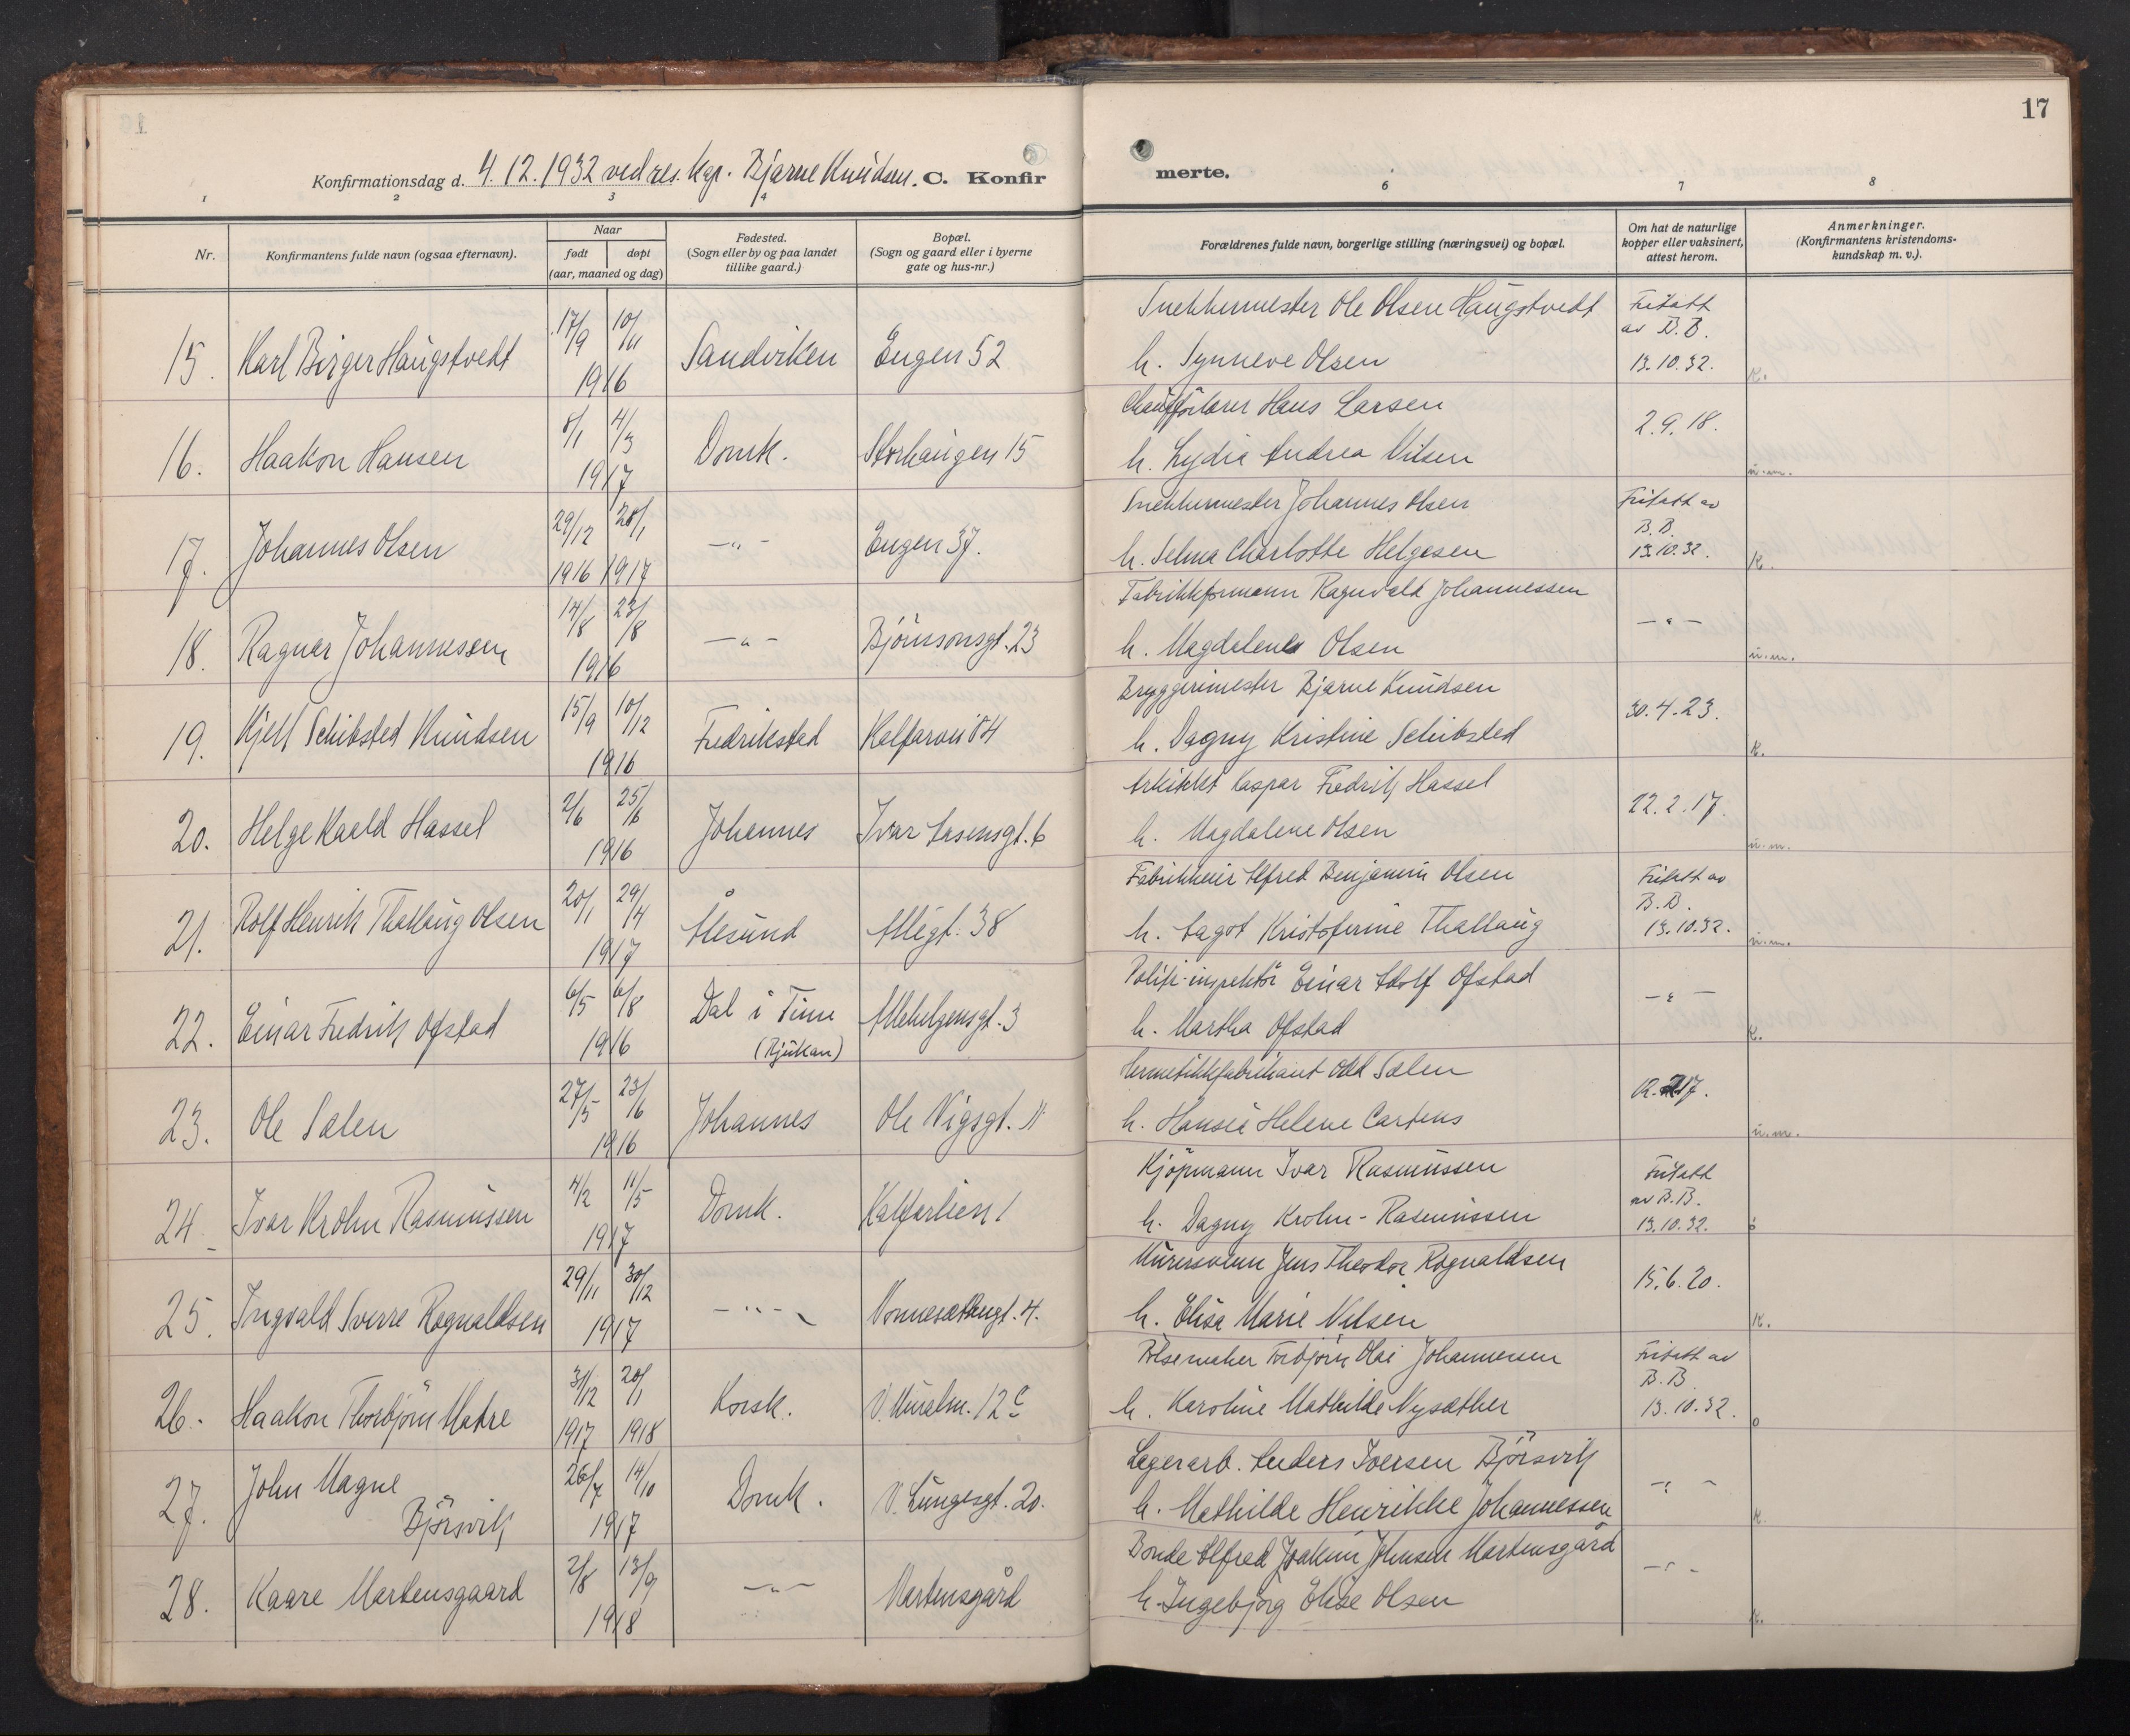 17
Konfirmationsdag d. 4.12.1932 ved res. kap. Bjarne Knudsen. C. Konfir
merte.
1 2 3 4
6 7 8
Nr.
Konfirmantens fulde navn (ogsaa efternavn).
Naar
født
døpt
(aar, maaned og dag)
Fødested.
(Sogn eller by og paa landet
tillike gaard.)
Bopæl.
(Sogn og gaard eller i byerne
gate og hus-nr.)
Forældrenes fulde navn, borgerlige stilling (næringsvei) og bopæl.
Om hat de naturlige
kopper eller vaksinert,
attest herom.
Anmerkninger.
(Konfirmantens kristendoms-
kundskap m. v.).
15. Karl Birger Haugstvedt 17/9 10/11 1916 Sandviken Engen 52
Snekkermester Ole Olsen Haugstvedt
h. Synneve Olsen
Fritatt
av B.B.
13.10.32. K.
16. Haakon Hansen 8/1 4/3 1917 Domk. Storhaugen 15
Chaufförlærer Hans Larsen
h. Lydia Andrea Nilsen
2.9.18. u.m.
17. Johannes Olsen 29/12 1916 28/1 1917 —"— Engen 37.
Snekkermester Johannes Olsen
h. Selma Charlotte Helgesen
Fritatt av
B.B.
13.10.32. K.
18. Ragnar Johannessen 14/8 23/8 1916 —"— Bjönssonsgt. 23
Fabrikkformann Ragnvald Johannessen
h. Magdalene Olsen
—"— u.m.
19. Kjell Schibsted Knudsen 15/9 10/12 1916 Fredrikstad Kalfarvei 84
Bryggerimester Bjarne Knudsen
h. Dagny Kristine Schibsted
30.4.23. K.
20. Helge Kaald Hassel 2/6 25/6 1916 Johannes Ivar Aasensgt. 6
Arkitekt Kaspar Fredrik Hassel
h. Magdalene Olsen
22.2.17. u.m.
21. Rolf Henrik Thallaug Olsen 20/1 29/4 1917 Ålesund Allégt. 38
Fabrikkeier Alfred Benjamin Olsen
h. Aagot Kristoferine Thallaug
Fritatt av
B.B.
13.10.32. u.m.
22. Einar Fredrik Ofstad 6/5 6/8 1916 Dal i Tinn
(Rjukan) Allehelgensgt. 3
Politi-inspektör Einar Adolf Ofstad
h. Martha Ofstad
—"— K.
23. Ole Salen 27/5 23/6 1916 Johannes Ole Vigsgt. 11
Hermetikkfabrikant Odd Salen
h. Hansia Helene Cartens
u.m.
24. Ivar Krohn Rasmussen 4/2 11/5 1917 Domk. Kalfarlien 1
Kjöpmann Ivar Rasmussen
h. Dagny Krohn-Rasmussen
Fritatt
av B.B.
13.10.32.
25. Ingvald Sverre Rognaldsen 29/11 30/12 1917 —"— Nonnesætergt. 4.
Murersvenn Jens Theodor Rognaldsen
h. Elisa Marie Nilsen
15.6.20. K.
26. Haakon Thorbjörn Matre 31/12 1917 20/1 1918 Korsk. V. Muralm. 12 c
Pölsemaker Torbjörn Olai Johannesen
h. Karoline Mathilde Nysæther
Fritatt av
B.B.
13.10.32. o
27. John Magne
Björsvik 26/7 14/10 1917 Domk. V. Lungegt. 20.
Lagerarb. Anders Iversen Björsvik
h. Mathilde Henrikke Johannessen
—"— K.
28. Kaare Martensgaard 2/8 13/9 1918 —"— Martensgård
Bonde Alfred Joakim Johnsen Martensgård
h. Ingebjörg Elise Olsen
—"— K.